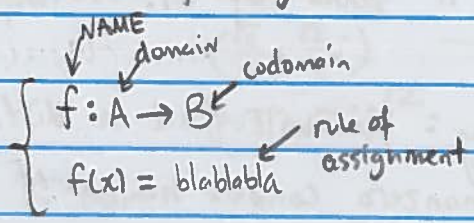 NAME
domain
codomain
f : A → B
rule of
assignment
f(x) = blablabla